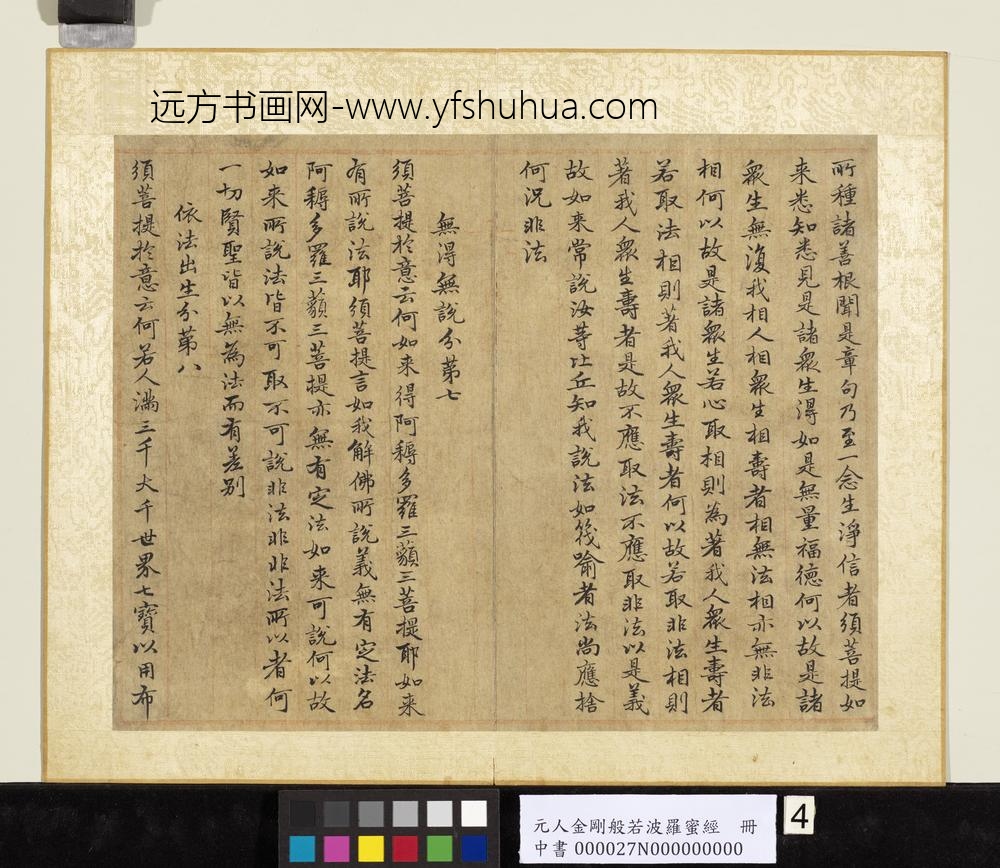 远方书画网-www.yfshuhua.com
所種諸善根聞是章句乃至一念生淨信者須菩提如
来悉知悉見是諸衆生得如是無量福德何以故是諸
衆生無復我相人相衆生相壽者相無法相亦無非法
相何以故是諸衆生若心取相則為著我人衆生壽者
若取法相則著我人衆生壽者何以故若取非法相則
著我人衆生壽者是故不應取法不應取非法以是義
故如来常說汝等比丘知我說法如筏喻者法尚應捨
何況非法
無得無說分第七
須菩提於意云何如来得阿耨多羅三藐三菩提耶如来
有所說法耶須菩提言如我解佛所說義無有定法名
阿耨多羅三藐三菩提亦無有定法如来可說何以故
如来所說法皆不可取不可說非法非非法所以者何
一切賢聖皆以無為法而有差別
依法出生分第八
須菩提於意云何若人滿三千大千世界七寶以用布
元人金剛般若波羅蜜經 冊
中書 000027N000000000
4